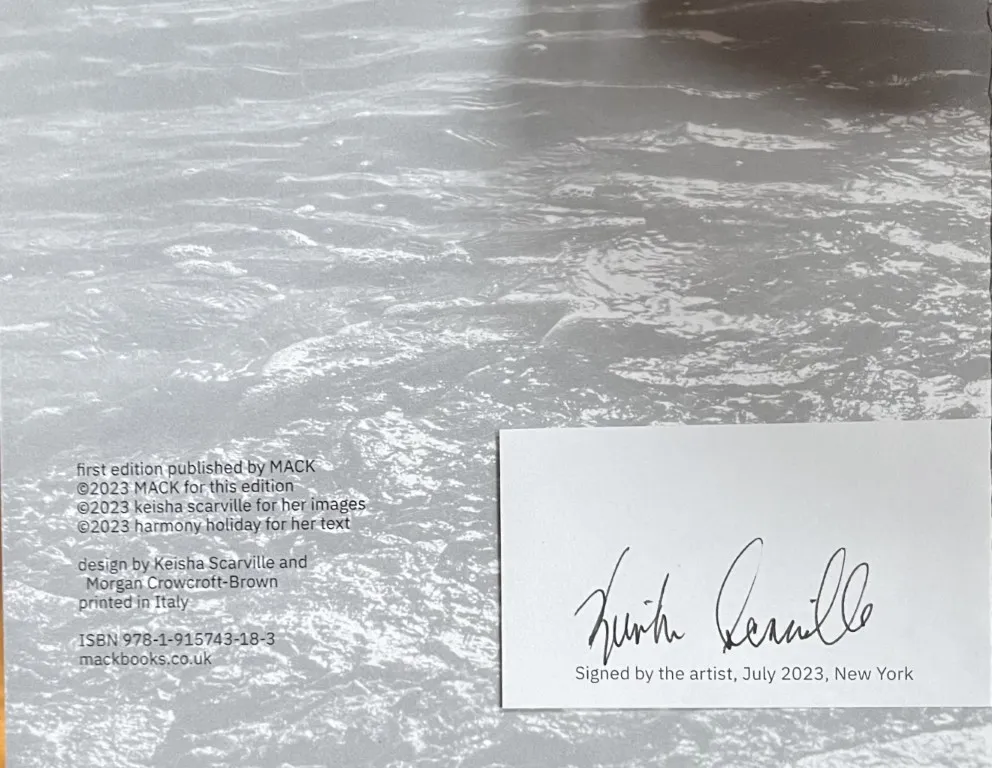 first edition published by MACK
©2023 MACK for this edition
©2023 keisha scarville for her images
©2023 harmony holiday for her text
design by Keisha Scarville and
Morgan Crowcroft-Brown
printed in Italy
ISBN 978-1-915743-18-3
mackbooks.co.uk
Keisha Scarville
Signed by the artist, July 2023, New York